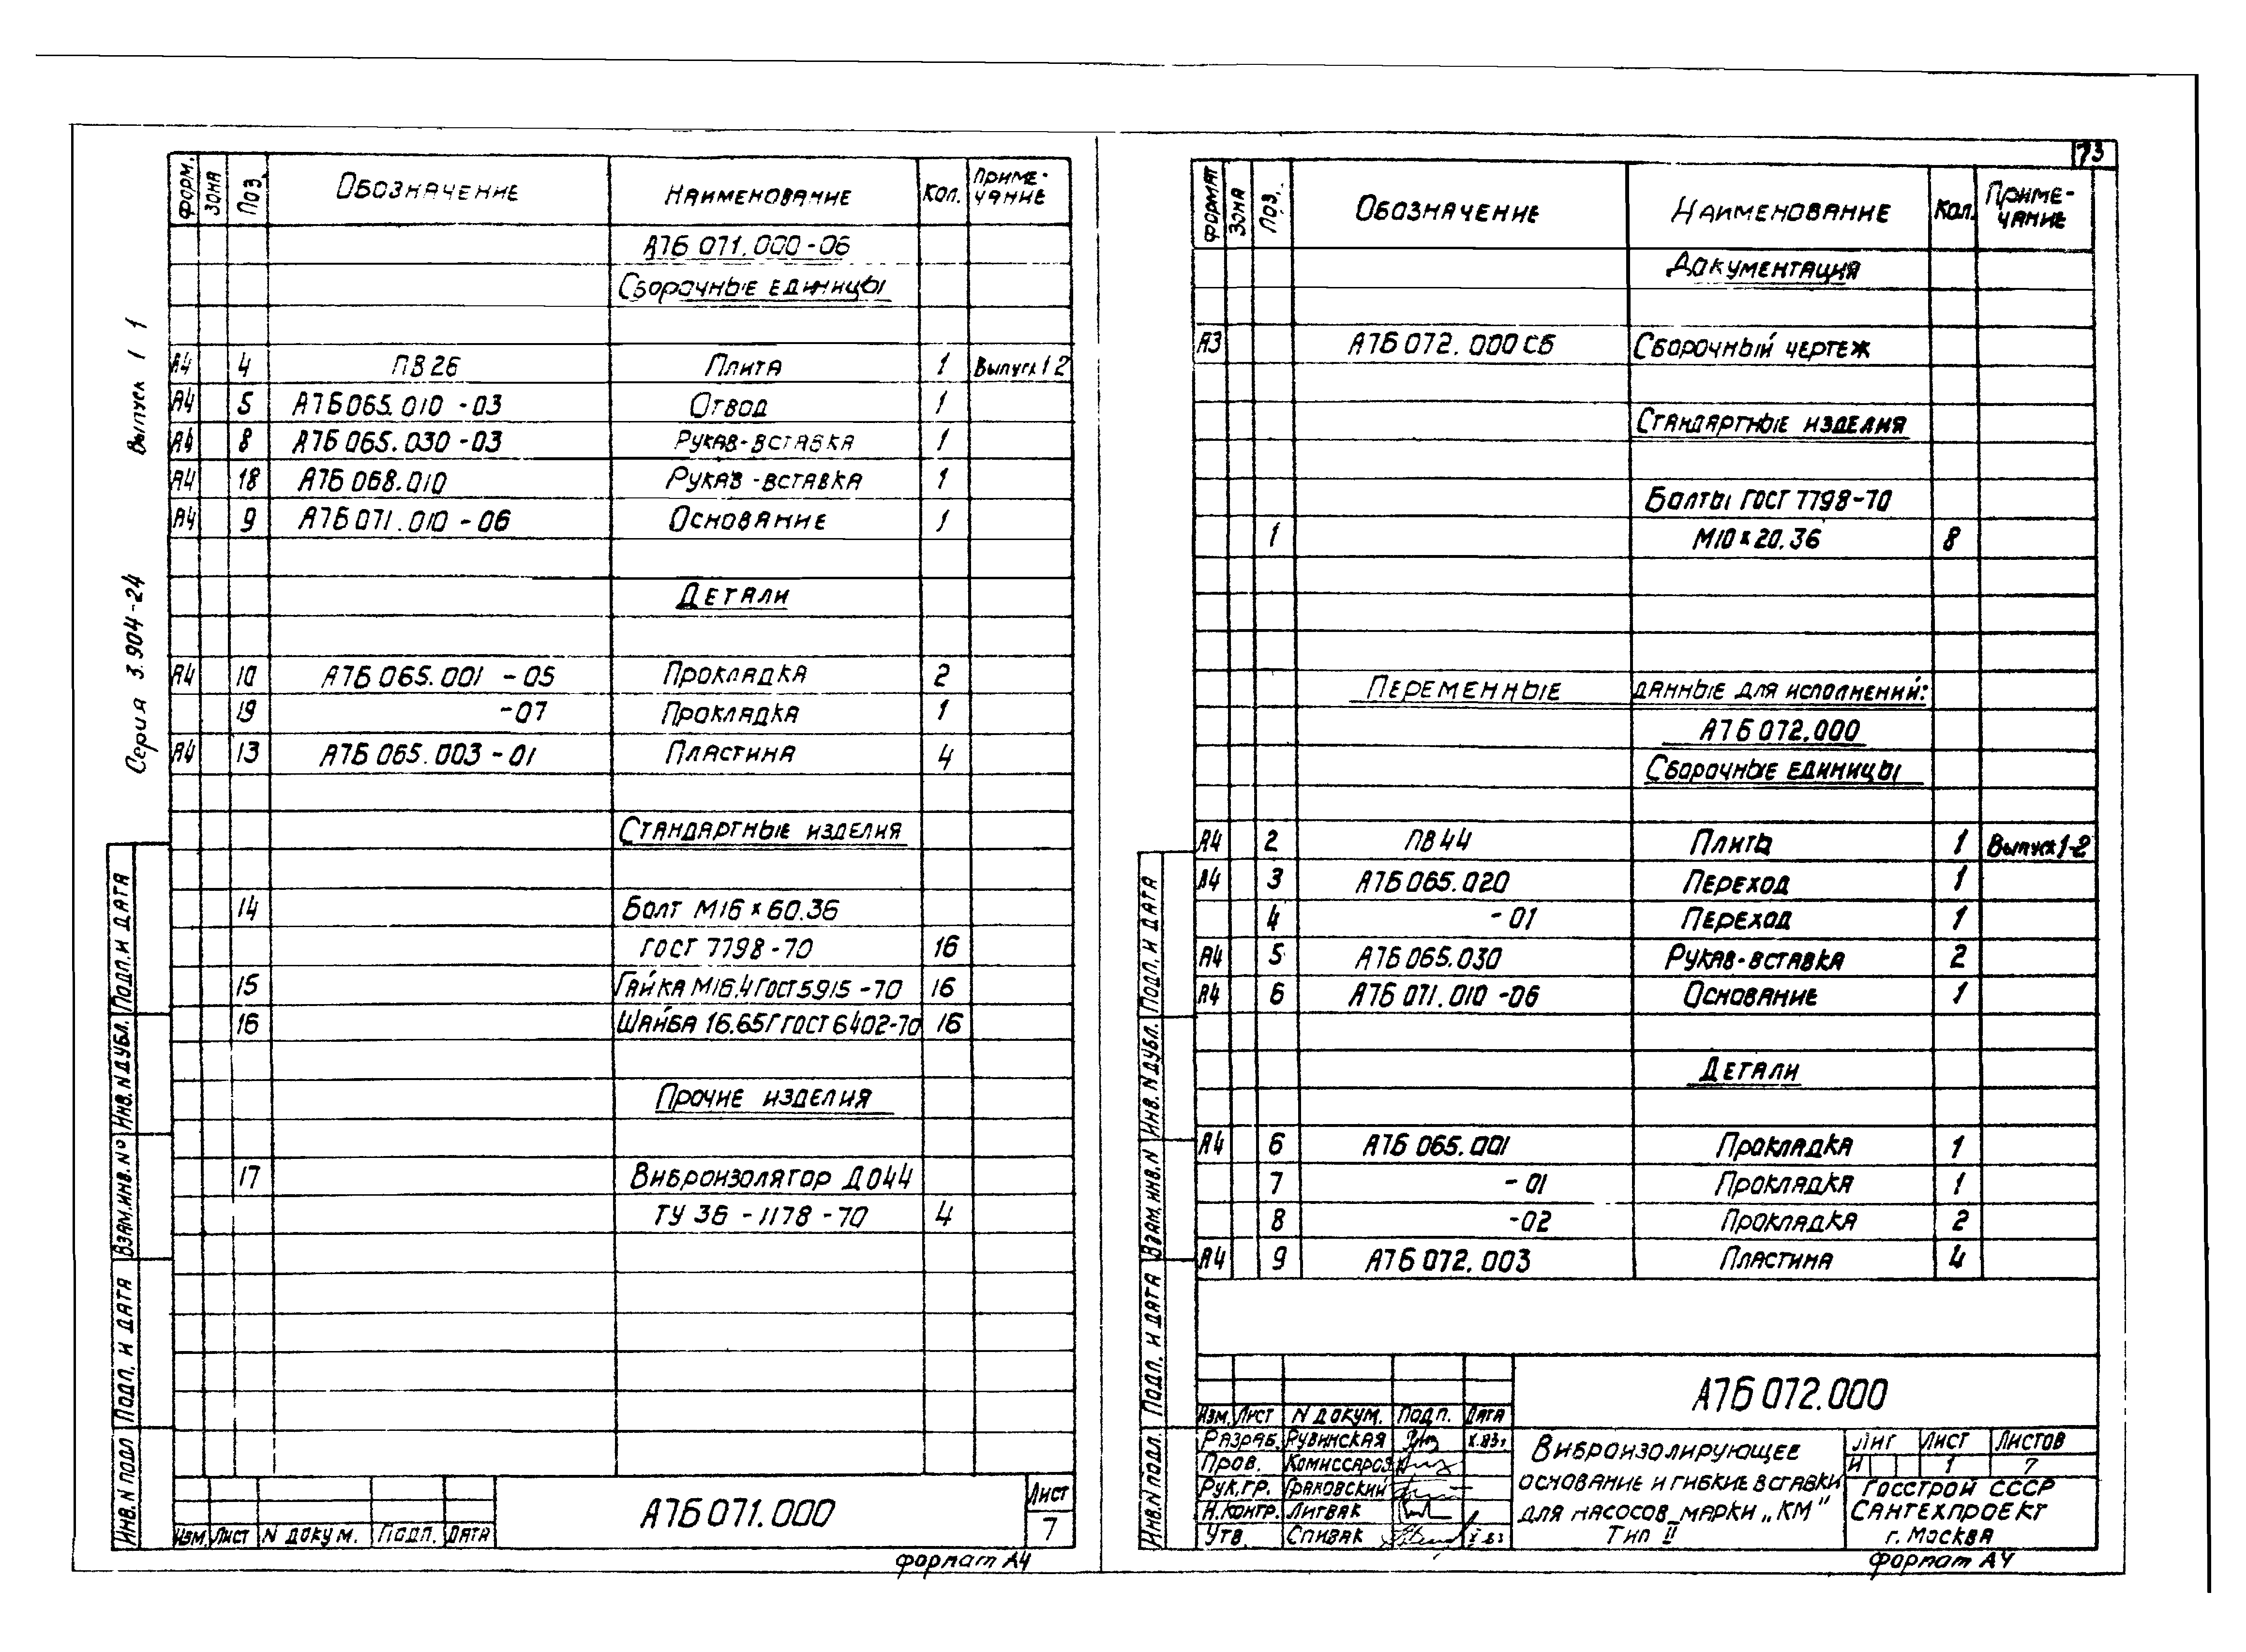 73
Серия 3.904-24 Выпуск 1 1
Форм. Зона Поз. Обозначение Наименование Кол. Примечание
А7Б 071.000-06
Сборочные единицы
А4 4 ПВ 26 Плита 1 Выпуск 1 2
А4 5 А7Б 065.010-03 Отвод 1
А4 8 А7Б 065.030-03 Рукав-вставка 1
А4 18 А7Б 068.010 Рукав-вставка 1
А4 9 А7Б 071.010-06 Основание 1
Детали
А4 10 А7Б 065.001-05 Прокладка 2
19 -07 Прокладка 1
А4 13 А7Б 065.003-01 Пластина 4
Стандартные изделия
14 Болт М16×60.36
ГОСТ 7798-70 16
15 Гайка М16.4 ГОСТ 5915-70 16
16 Шайба 16.65Г ГОСТ 6402-70 16
Прочие изделия
17 Виброизолятор ДО44
ТУ 36-1178-70 4
Инв. N подл Подп. и дата Взам. инв. № Инв. N дубл. Подп. и дата
Изм. Лист N докум. Подп. Дата
А7Б 071.000
Лист
7
Формат А4
Формат Зона Поз. Обозначение Наименование Кол. Примечание
Документация
А3 А7Б 072.000 СБ Сборочный чертеж
Стандартные изделия
Болты ГОСТ 7798-70
1 М10×20.36 8
Переменные данные для исполнений:
А7Б 072.000
Сборочные единицы
А4 2 ПВ 44 Плита 1 Выпуск 1-2
А4 3 А7Б 065.020 Переход 1
4 -01 Переход 1
А4 5 А7Б 065.030 Рукав-вставка 2
А4 6 А7Б 071.010-06 Основание 1
Детали
А4 6 А7Б 065.001 Прокладка 1
7 -01 Прокладка 1
8 -02 Прокладка 2
А4 9 А7Б 072.003 Пластина 4
Инв. N подл. Подп. и дата Взам. инв. N Инв. N дубл. Подп. и дата
А7Б 072.000
Изм. Лист N докум. Подп. Дата
Разраб. Рувинская X.83г
Пров. Комиссаров
Рук. гр. Грановский
Н. контр. Литвак
Утв. Спивак X 83
Виброизолирующее
основание и гибкие вставки
для насосов марки „КМ"
Тип II
Лит Лист Листов
И 1 7
Госстрой СССР
Сантехпроект
г. Москва
Формат А4